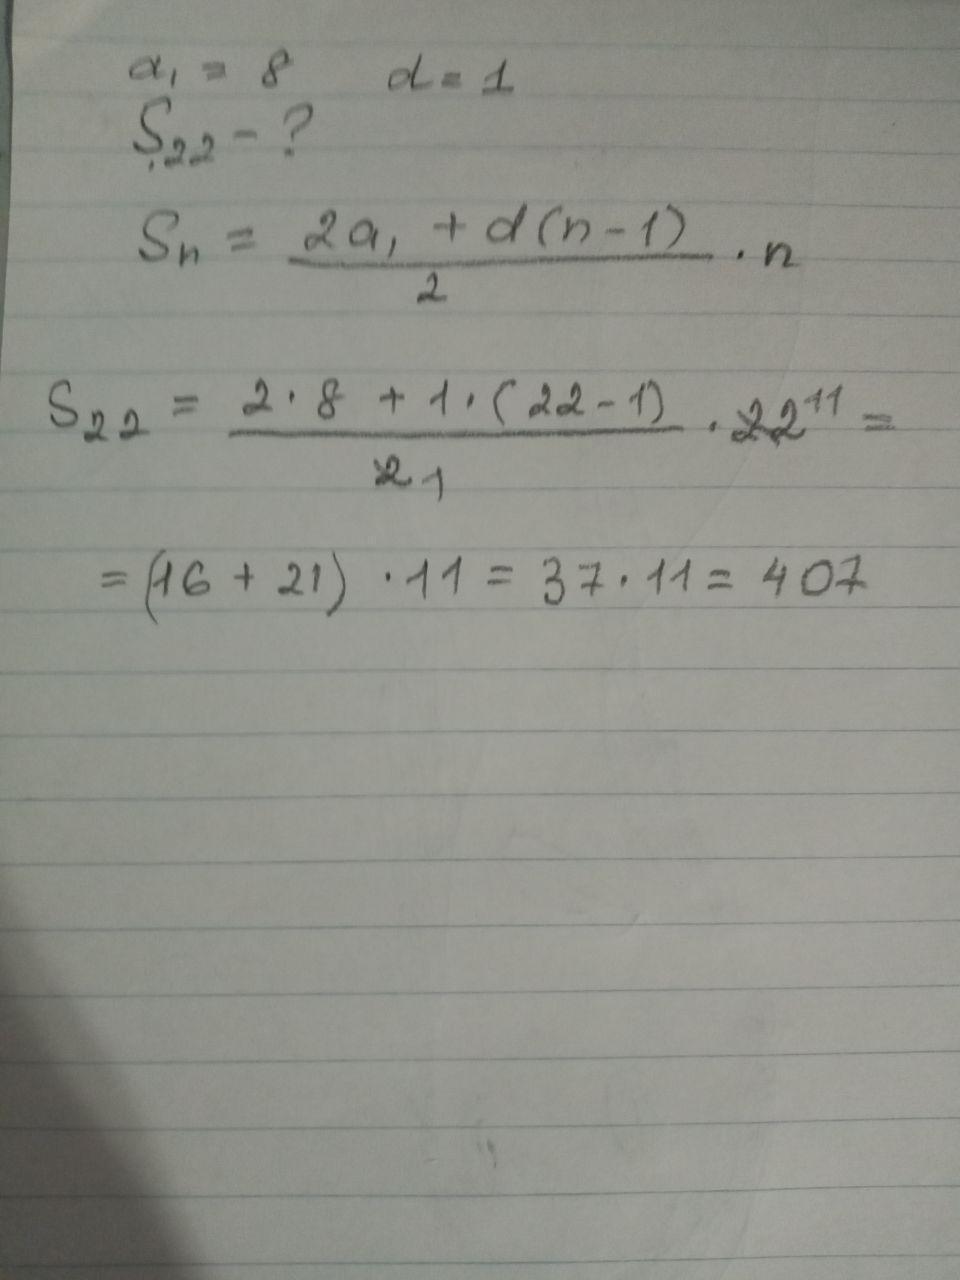 a₁ = 8 d = 1
S₂₂ - ?
Sₙ = 2a₁ + d(n-1) / 2 · n
S₂₂ = 2·8 + 1·(22-1) / 2 1 · 22 ¹¹ =
= (16 + 21) · 11 = 37 · 11 = 407